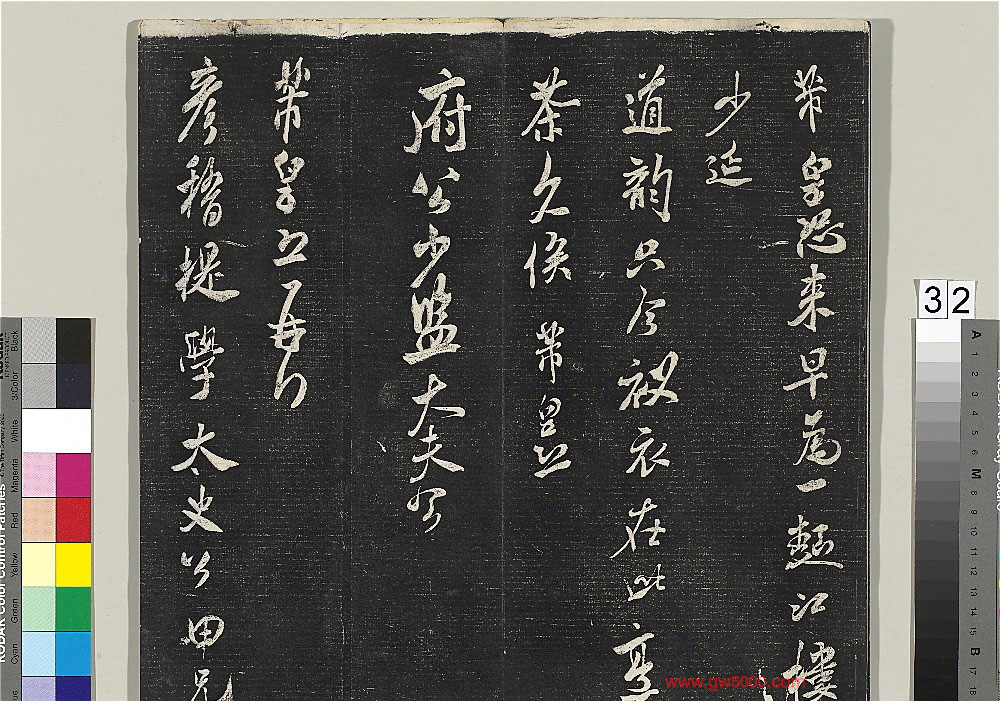 芾皇恐來早為一麵江樓
少延
道韵只今被衣在此烹
茶久俟 芾皇恐
府公少監大夫
芾皇恐再拜
彥稽提學太史公甲兄
32
www.gw5000.com
KODAK Color Control Patches
Cyan Green Yellow Red Magenta White 3/Color Black
A 1 2 3 4 5 6 M 8 9 10 11 12 13 14 15 B 17 18